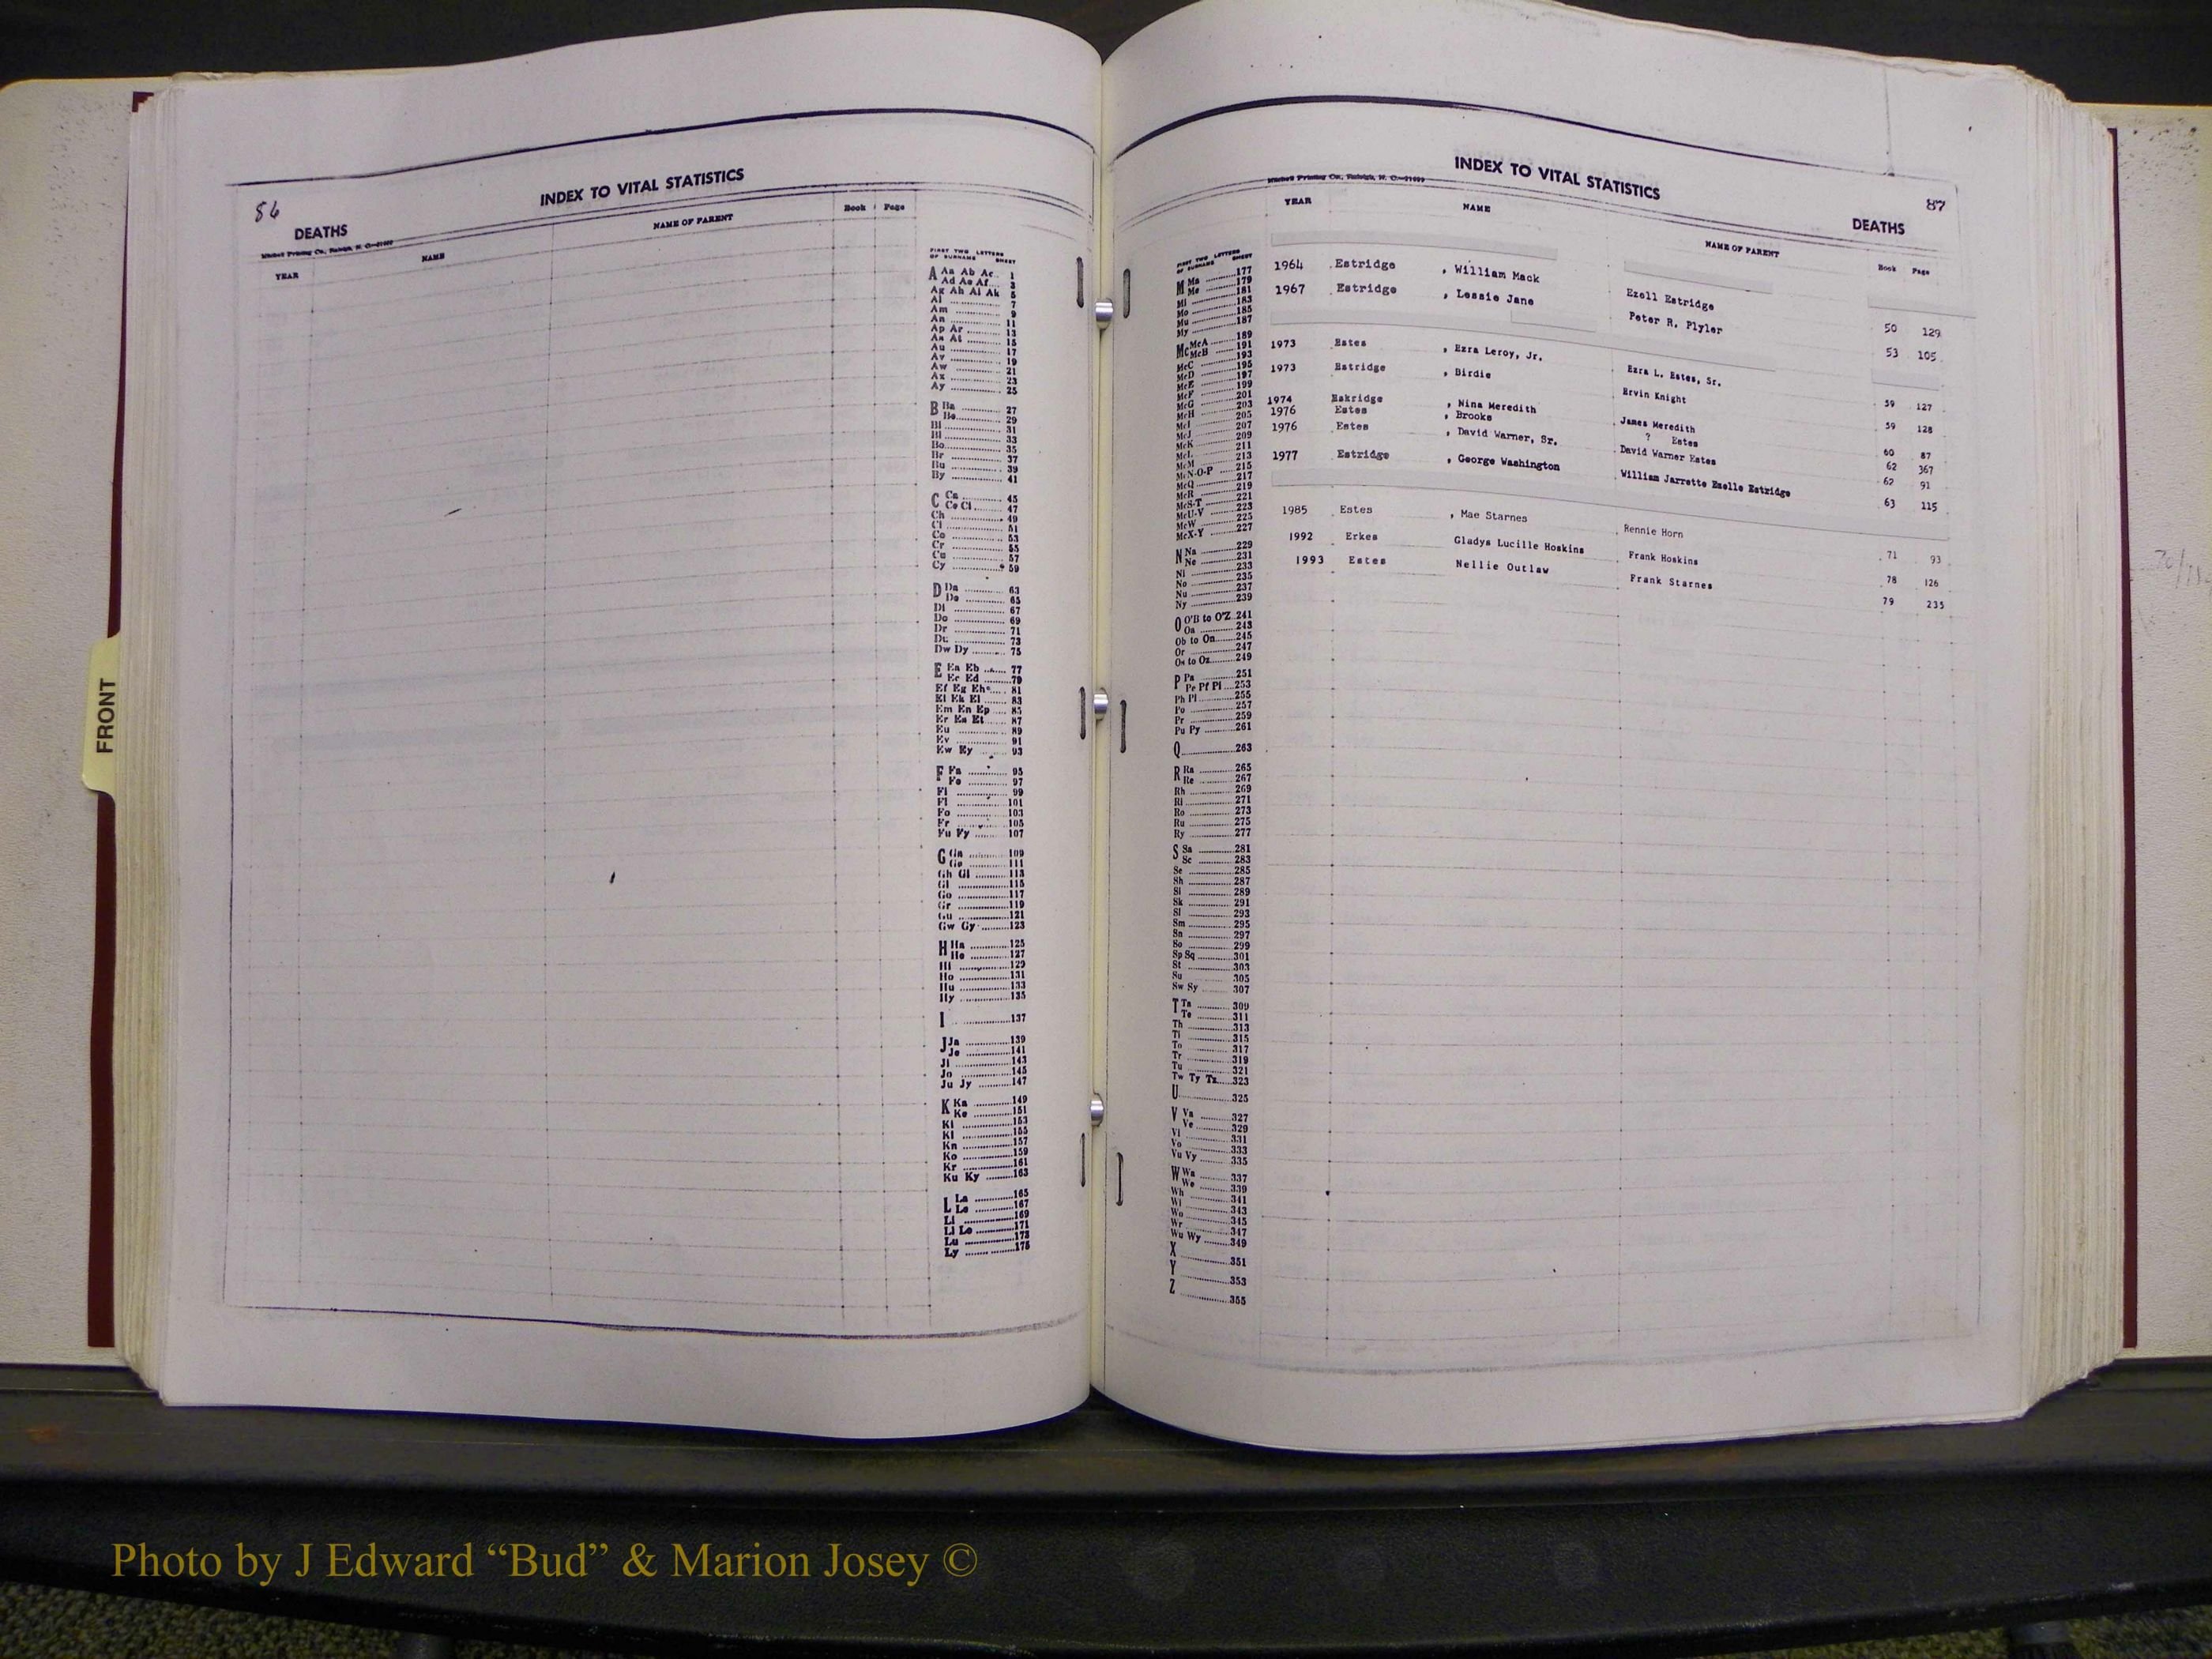 86
INDEX TO VITAL STATISTICS
DEATHS
Mitchell Printing Co., Raleigh, N. C.
YEAR NAME NAME OF PARENT Book Page
FIRST TWO LETTERS
OF SURNAME SHEET
A Aa Ab Ac 1
Ad Ae Af 3
Ag Ah Ai Ak 5
Al 7
Am 9
An 11
Ap Ar 13
As At 15
Au 17
Av 19
Aw 21
Ax 23
Ay 25
B Ba 27
Be 29
Bi 31
Bl 33
Bo 35
Br 37
Bu 39
By 41
C Ca 45
Ce Ci 47
Ch 49
Cl 51
Co 53
Cr 55
Cu 57
Cy 59
D Da 63
De 65
Di 67
Do 69
Dr 71
Du 73
Dw Dy 75
E Ea Eb 77
Ec Ed 79
Ef Eg Eh 81
Ei Ek El 83
Em En Ep 85
Er Es Et 87
Eu 89
Ev 91
Ew Ey 93
F Fa 95
Fe 97
Fi 99
Fl 101
Fo 103
Fr 105
Fu Fy 107
G Ga 109
Ge 111
Gh Gi 113
Gl 115
Go 117
Gr 119
Gu 121
Gw Gy 123
H Ha 125
He 127
Hi 129
Ho 131
Hu 133
Hy 135
I 137
J Ja 139
Je 141
Ji 143
Jo 145
Ju Jy 147
K Ka 149
Ke 151
Ki 153
Kl 155
Kn 157
Ko 159
Kr 161
Ku Ky 163
L La 165
Le 167
Li 169
Ll Lo 171
Lu 173
Ly 175
FRONT
INDEX TO VITAL STATISTICS
87
Mitchell Printing Co., Raleigh, N. C.
DEATHS
YEAR NAME NAME OF PARENT Book Page
1964 Estridge , William Mack Ezell Estridge 50 129
1967 Estridge , Lessie Jane Peter R. Plyler 53 105
1973 Estes , Ezra Leroy, Jr. Ezra L. Estes, Sr. 59 127
1973 Estridge , Birdie Ervin Knight 59 128
1974 Eskridge , Nina Meredith James Meredith 60 87
1976 Estes , Brooks ? Estes 62 367
1976 Estes , David Warner, Sr. David Warner Estes 62 91
1977 Estridge , George Washington William Jarrette Ezelle Estridge 63 115
1985 Estes , Mae Starnes Rennie Horn 71 93
1992 Erkes Gladys Lucille Hoskins Frank Hoskins 78 126
1993 Estes Nellie Outlaw Frank Starnes 79 235
FIRST TWO LETTERS
OF SURNAME SHEET
M Ma 177
Me 179
Mi 181
Mo 183
Mu 185
My 187
Mc McA 189
McB 191
McC 193
McD 195
McE 197
McF 199
McG 201
McH 203
McI 205
McJ 207
McK 209
McL 211
McM 213
McN-O-P 215
McQ 217
McR 219
McS-T 221
McU-V 223
McW 225
McX-Y 227
N Na 229
Ne 231
Ni 233
No 235
Nu 237
Ny 239
O O'B to O'Z 241
Oa 243
Ob to On 245
Or 247
Os to Oz 249
P Pa 251
Pe Pf Pi 253
Ph Pl 255
Po 257
Pr 259
Pu Py 261
Q 263
R Ra 265
Re 267
Rh 269
Ri 271
Ro 273
Ru 275
Ry 277
S Sa 281
Sc 283
Se 285
Sh 287
Si 289
Sk 291
Sl 293
Sm 295
Sn 297
So 299
Sp Sq 301
St 303
Su 305
Sw Sy 307
T Ta 309
Te 311
Th 313
Ti 315
To 317
Tr 319
Tu 321
Tw Ty Tz 323
U 325
V Va 327
Ve 329
Vi 331
Vo 333
Vu Vy 335
W Wa 337
We 339
Wh 341
Wi 343
Wo 345
Wr 347
Wu Wy 349
X 351
Y 353
Z 355
Photo by J Edward “Bud” & Marion Josey ©